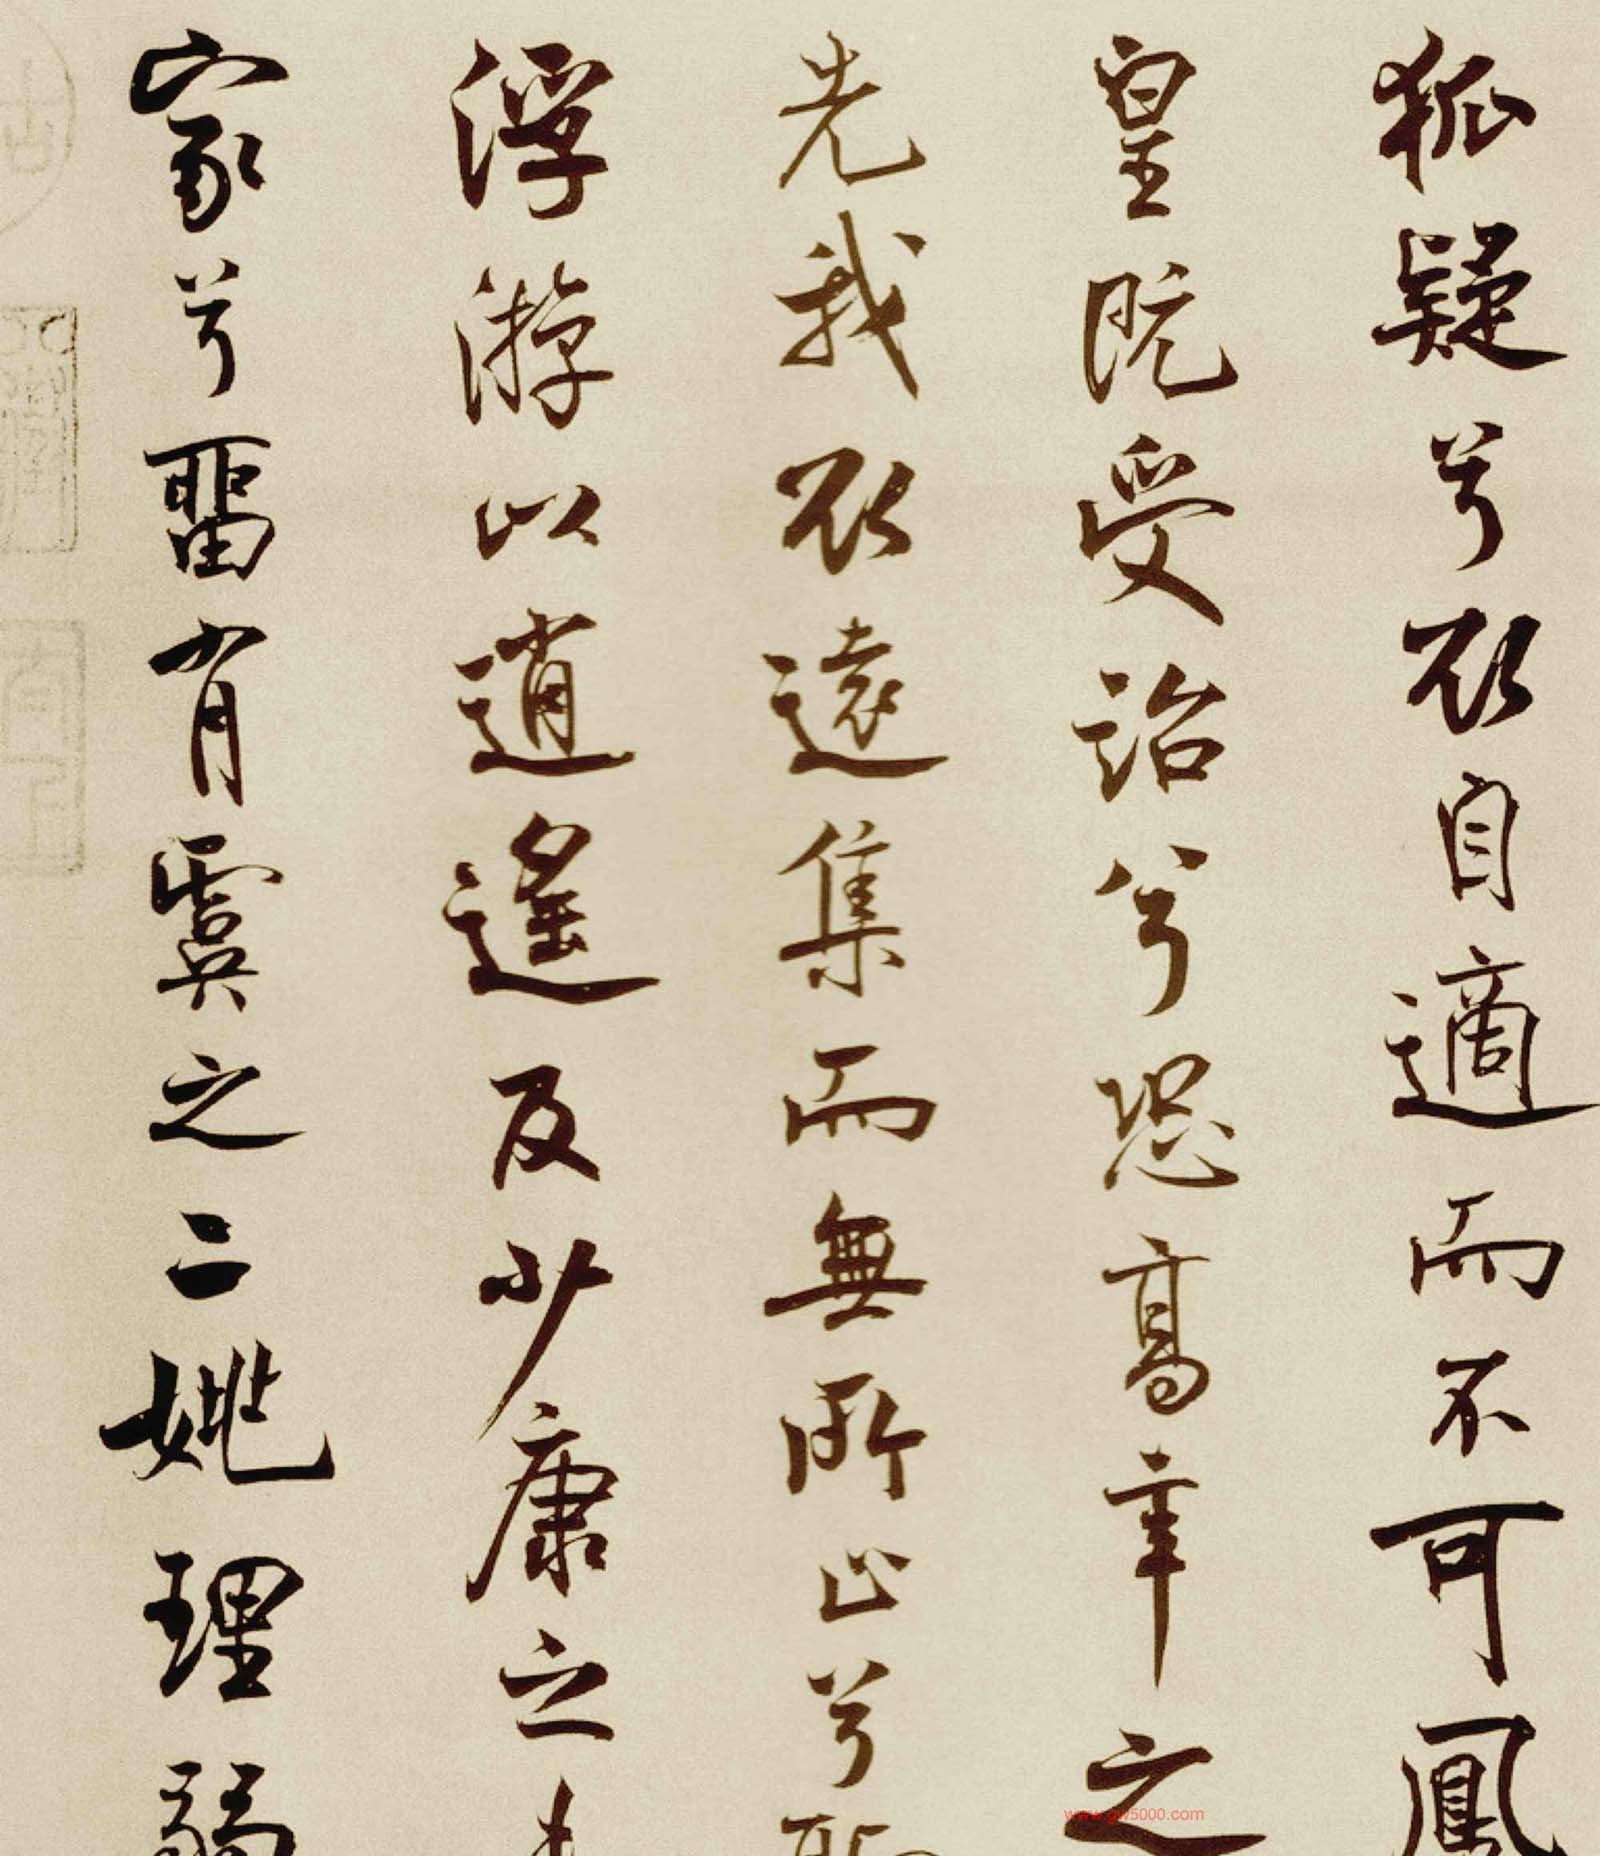 狐疑兮欲自適而不可鳳
皇既受詒兮恐高辛之
先我欲遠集而無所止兮聊
浮游以逍遙及少康之未
家兮畱有虞之二姚理弱
www.gw5000.com